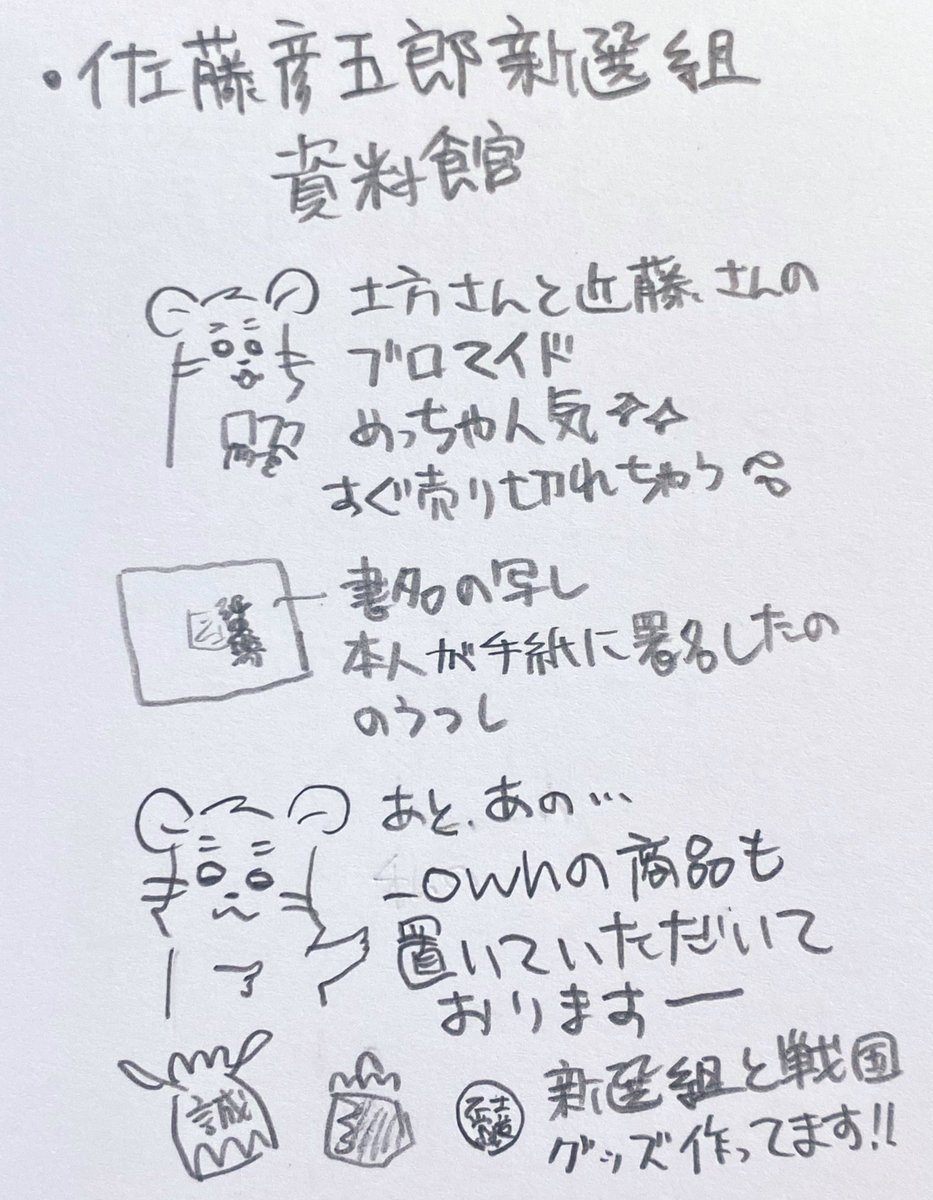 ・佐藤彦五郎新選組
資料館
土方さんと近藤さんの
ブロマイド
めっちゃ人気
すぐ売り切れちゃう
書名の写し
本人が手紙に署名したの
のうつし
あと、あの…
_ownの商品も
置いていただいて
おりますー
誠
新選組と戦国
グッズ作ってます!!